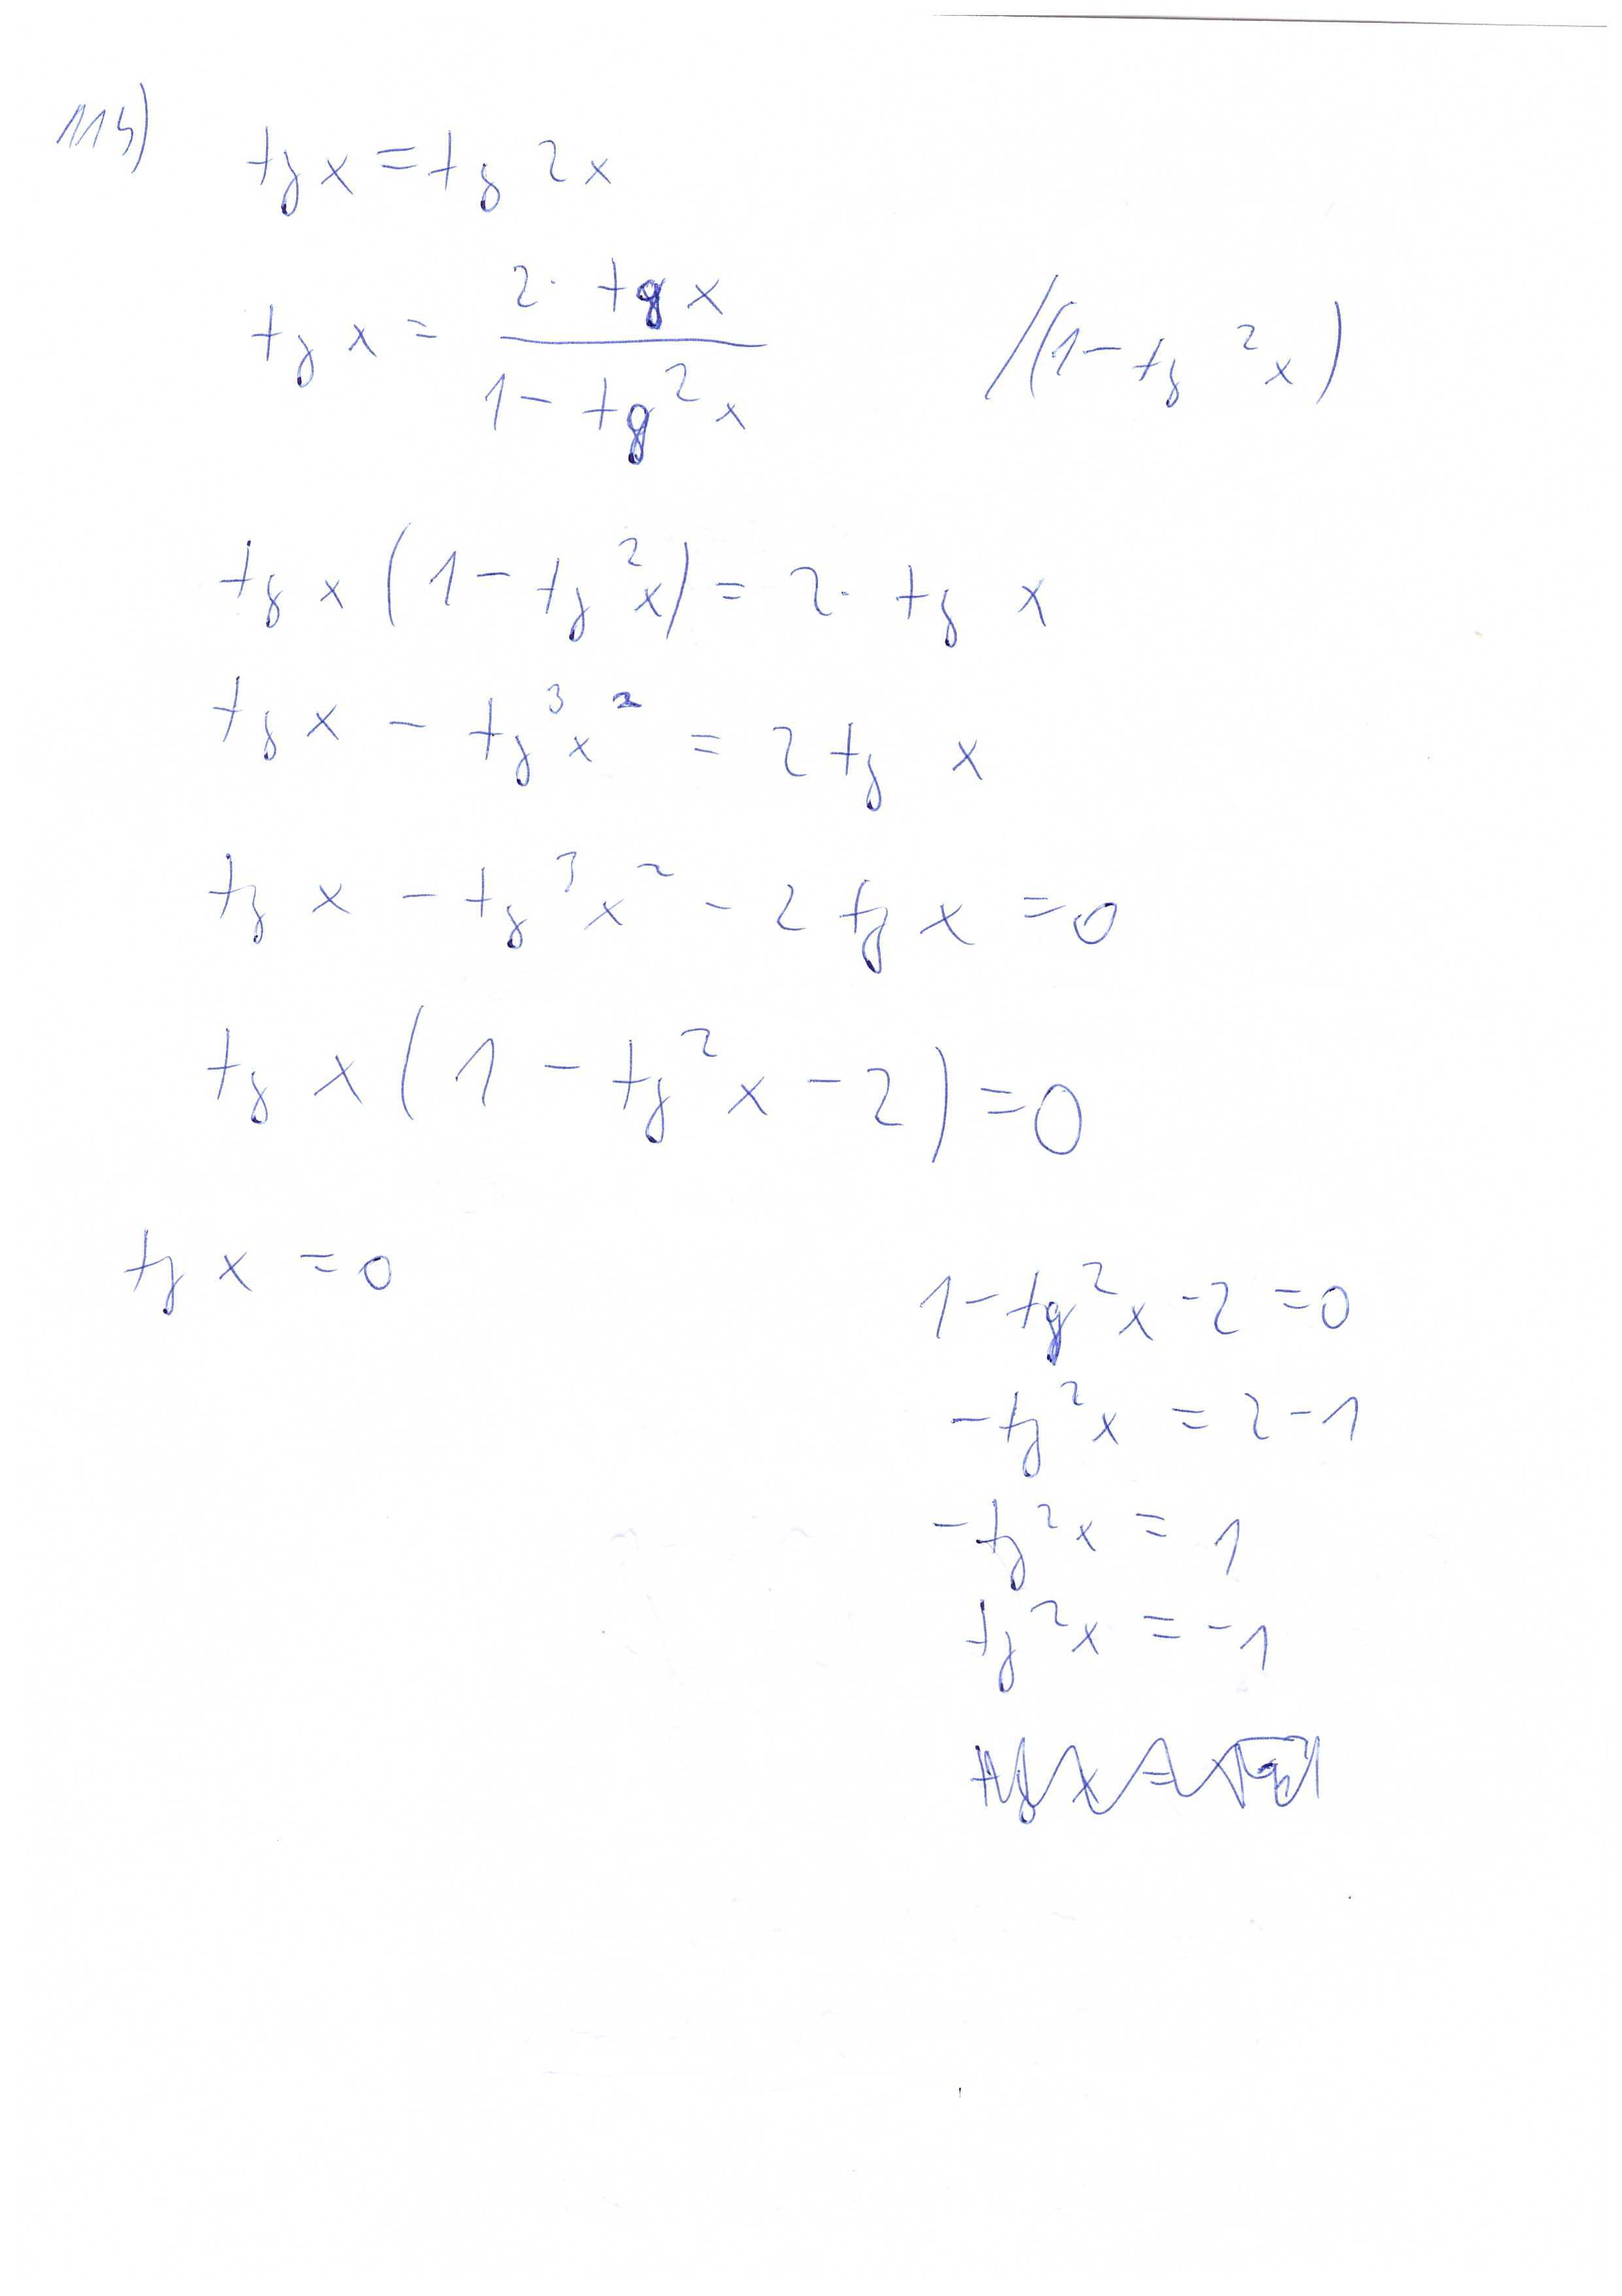 114)
tg x = tg 2x
tg x = (2 · tg x) / (1 - tg²x)    /(1 - tg²x)
tg x (1 - tg²x) = 2 · tg x
tg x - tg³x² = 2 tg x
tg x - tg³x² - 2 tg x = 0
tg x (1 - tg²x - 2) = 0
tg x = 0
1 - tg²x - 2 = 0
-tg²x = 2 - 1
-tg²x = 1
tg²x = -1